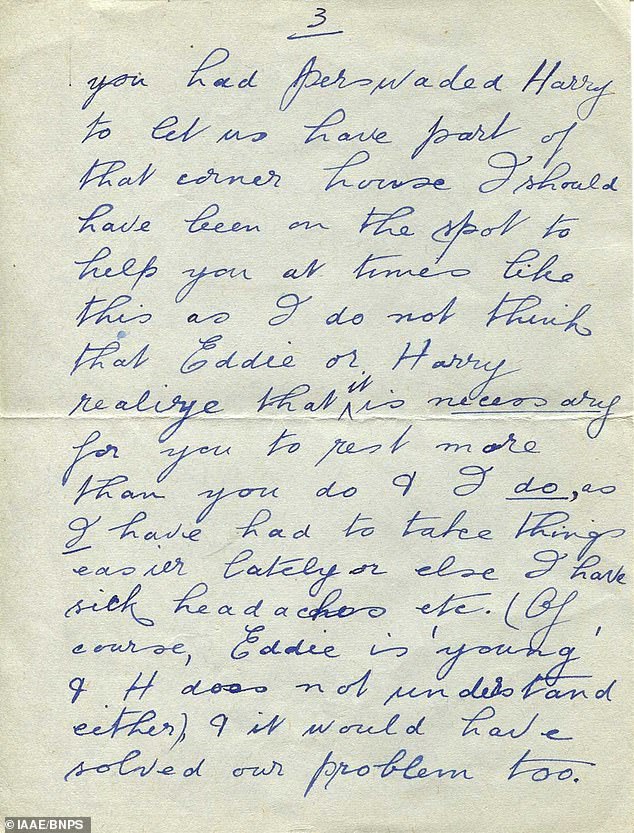 3
you had persuaded Harry
to let us have part of
that corner house I should
have been on the spot to
help you at times like
this as I do not think
that Eddie or Harry
realize that it is necessary
for you to rest more
than you do & I do, as
I have had to take things
easier lately or else I have
sick headaches etc. (Of
course, Eddie is 'young'
& H does not understand
either), & it would have
solved our problem too.
©IAAE/BNPS